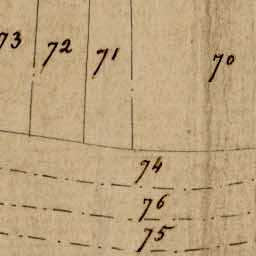 73 72 71 70
74
76
75